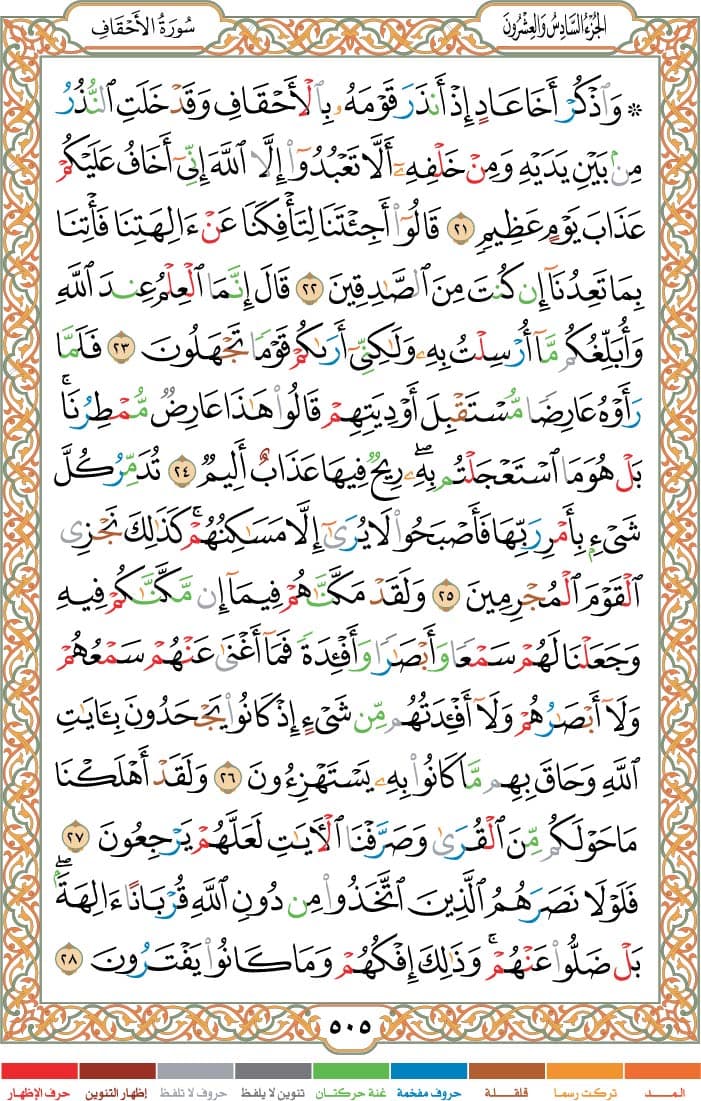 الجزء السادس والعشرون
سورة الأحقاف
۞ وَٱذْكُرْ أَخَا عَادٍ إِذْ أَنذَرَ قَوْمَهُۥ بِٱلْأَحْقَافِ وَقَدْ خَلَتِ ٱلنُّذُرُ
مِنۢ بَيْنِ يَدَيْهِ وَمِنْ خَلْفِهِۦٓ أَلَّا تَعْبُدُوٓا۟ إِلَّا ٱللَّهَ إِنِّىٓ أَخَافُ عَلَيْكُمْ
عَذَابَ يَوْمٍ عَظِيمٍ ٢١ قَالُوٓا۟ أَجِئْتَنَا لِتَأْفِكَنَا عَنْ ءَالِهَتِنَا فَأْتِنَا
بِمَا تَعِدُنَآ إِن كُنتَ مِنَ ٱلصَّٰدِقِينَ ٢٢ قَالَ إِنَّمَا ٱلْعِلْمُ عِندَ ٱللَّهِ
وَأُبَلِّغُكُم مَّآ أُرْسِلْتُ بِهِۦ وَلَٰكِنِّىٓ أَرَىٰكُمْ قَوْمًا تَجْهَلُونَ ٢٣ فَلَمَّا
رَأَوْهُ عَارِضًا مُّسْتَقْبِلَ أَوْدِيَتِهِمْ قَالُوا۟ هَٰذَا عَارِضٌ مُّمْطِرُنَا ۚ
بَلْ هُوَ مَا ٱسْتَعْجَلْتُم بِهِۦ ۖ رِيحٌ فِيهَا عَذَابٌ أَلِيمٌ ٢٤ تُدَمِّرُ كُلَّ
شَىْءٍۭ بِأَمْرِ رَبِّهَا فَأَصْبَحُوا۟ لَا يُرَىٰٓ إِلَّا مَسَٰكِنُهُمْ ۚ كَذَٰلِكَ نَجْزِى
ٱلْقَوْمَ ٱلْمُجْرِمِينَ ٢٥ وَلَقَدْ مَكَّنَّٰهُمْ فِيمَآ إِن مَّكَّنَّٰكُمْ فِيهِ
وَجَعَلْنَا لَهُمْ سَمْعًا وَأَبْصَٰرًا وَأَفْـِٔدَةً فَمَآ أَغْنَىٰ عَنْهُمْ سَمْعُهُمْ
وَلَآ أَبْصَٰرُهُمْ وَلَآ أَفْـِٔدَتُهُم مِّن شَىْءٍ إِذْ كَانُوا۟ يَجْحَدُونَ بِـَٔايَٰتِ
ٱللَّهِ وَحَاقَ بِهِم مَّا كَانُوا۟ بِهِۦ يَسْتَهْزِءُونَ ٢٦ وَلَقَدْ أَهْلَكْنَا
مَا حَوْلَكُم مِّنَ ٱلْقُرَىٰ وَصَرَّفْنَا ٱلْـَٔايَٰتِ لَعَلَّهُمْ يَرْجِعُونَ ٢٧
فَلَوْلَا نَصَرَهُمُ ٱلَّذِينَ ٱتَّخَذُوا۟ مِن دُونِ ٱللَّهِ قُرْبَانًا ءَالِهَةًۢ ۖ
بَلْ ضَلُّوا۟ عَنْهُمْ ۚ وَذَٰلِكَ إِفْكُهُمْ وَمَا كَانُوا۟ يَفْتَرُونَ ٢٨
٥٠٥
المــد تركت رسما قلقلة حروف مفخمة غنة حركتان تنوين لا يلفظ حروف لا تلفظ إظهار التنوين حرف الإظهار